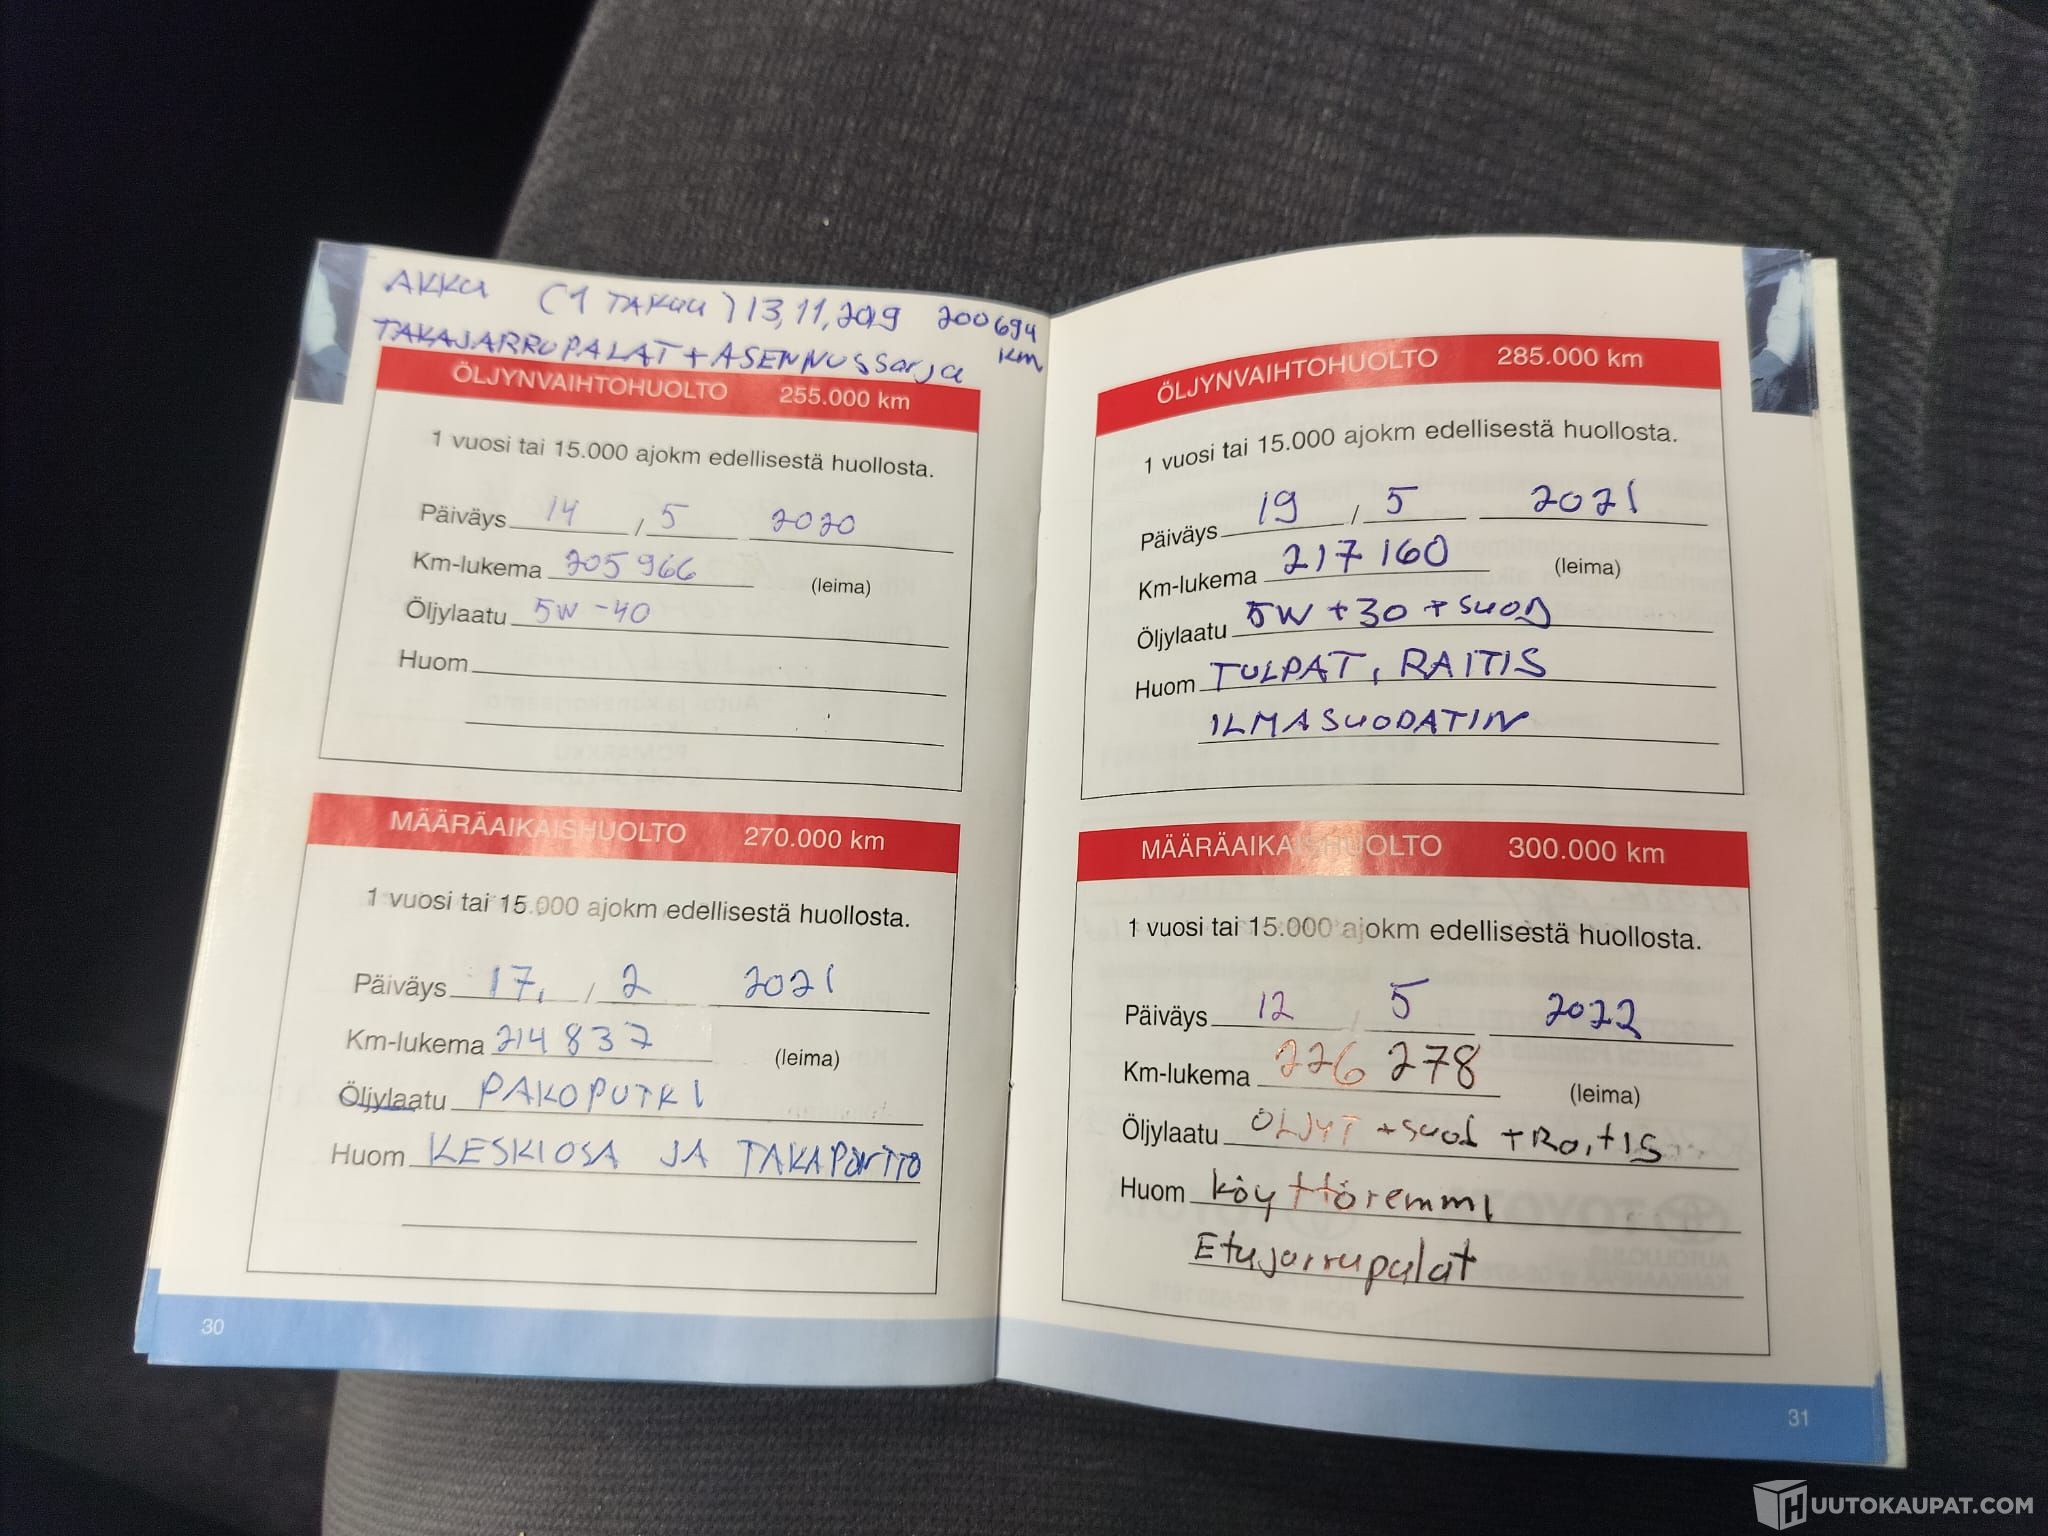 AKKU (1 TAKUU) 13,11,2019 200694 km
TAKAJARRUPALAT + ASENNUSSarja
ÖLJYNVAIHTOHUOLTO 255.000 km
1 vuosi tai 15.000 ajokm edellisestä huollosta.
Päiväys 14 / 5 2020
Km-lukema 205 966 (leima)
Öljylaatu 5W-40
Huom
MÄÄRÄAIKAISHUOLTO 270.000 km
1 vuosi tai 15.000 ajokm edellisestä huollosta.
Päiväys 17, / 2 2021
Km-lukema 214 837 (leima)
Öljylaatu PAKOPUTKI
Huom KESKIOSA JA TAKAPÖNTTÖ
30
ÖLJYNVAIHTOHUOLTO 285.000 km
1 vuosi tai 15.000 ajokm edellisestä huollosta.
Päiväys 19 / 5 2021
Km-lukema 217 160 (leima)
Öljylaatu 5W+30 + SUOD
Huom TULPAT, RAITIS
ILMASUODATIN
MÄÄRÄAIKAISHUOLTO 300.000 km
1 vuosi tai 15.000 ajokm edellisestä huollosta.
Päiväys 12 / 5 2022
Km-lukema 226 278 (leima)
Öljylaatu ÖLJYT + SUOd + RaitIS
Huom Köyttöremmi
Etujarrupalat
31
HUUTOKAUPAT.COM